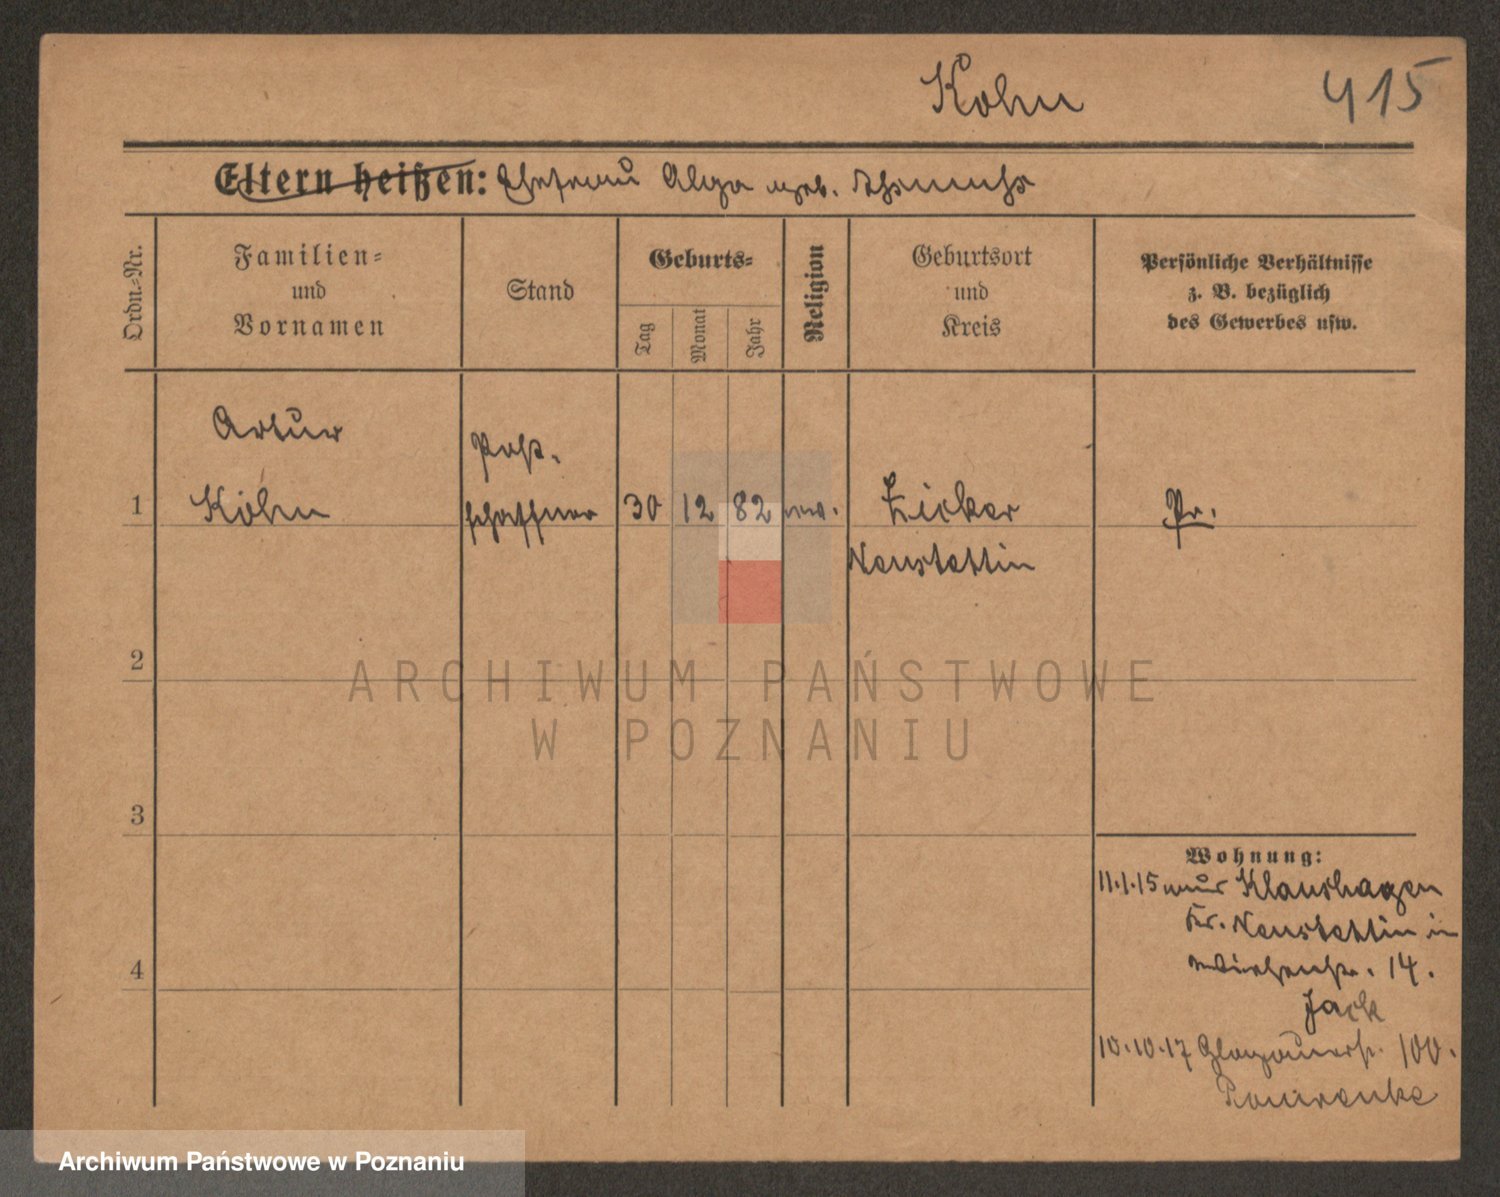 Kohn
415
Eltern heißen: Ehefrau Olga geb.
Ordn.-Nr.
Familien-
und
Vornamen
Stand
Geburts-
Tag
Monat
Jahr
Religion
Geburtsort
und
Kreis
Persönliche Verhältnisse
z. B. bezüglich
des Gewerbes usw.
Artur
Post-
1 Kohn schaffner 30 12 82 ev. Zicker Pr.
Neustettin
2
3
4
ARCHIWUM PAŃSTWOWE
W POZNANIU
Wohnung:
11.1.15 aus Klaushagen
Kr. Neustettin in
14.
Jack
10.10.17 Glogauerstr. 100.
Archiwum Państwowe w Poznaniu